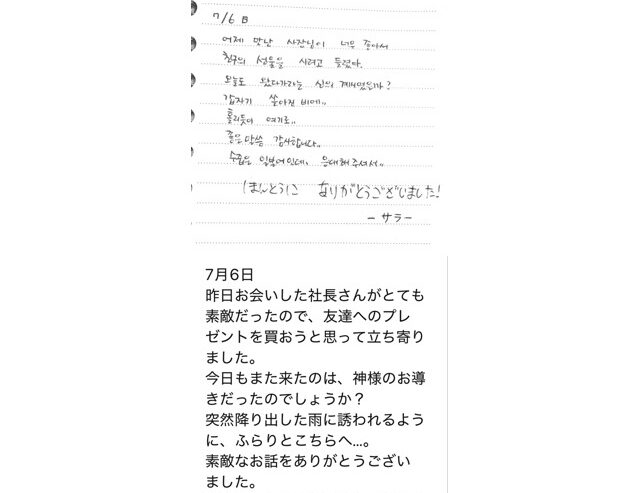 7/6 日
어제 만난 사장님이 너무 좋아서
친구의 선물을 사려고 들렀다.
오늘도 왔다가라는 신의 계시였을까?
갑자기 쏟아진 비에..
홀리듯이 여기로..
좋은말씀 감사합니다..
수줍은 일본어인데, 응대해주셔서..
ほんとうに ありがとうございました!
- サラ -
7月6日
昨日お会いした社長さんがとても
素敵だったので、友達へのプレ
ゼントを買おうと思って立ち寄り
ました。
今日もまた来たのは、神様のお導
きだったのでしょうか？
突然降り出した雨に誘われるよう
に、ふらりとこちらへ…。
素敵なお話をありがとうござい
ました。